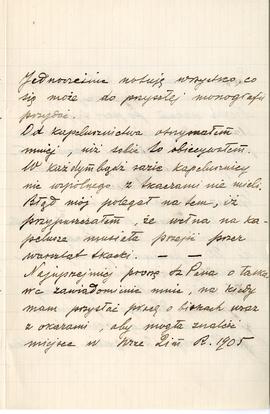 Jednocześnie notuję wszystko, co
się może do przyszłej monografii
przydać.
Od kapelusznictwa otrzymałem
mniej, niż sobie to obiecywałem.
W każdym bądź razie kapelusznicy
nic wspólnego z tkaczami nie mieli.
Błąd mój polegał na tem, iż
przypuszczałem, że wełna na ka-
pelusze musiała przejść przez
warsztat tkacki. — —
Najuprzejmiej proszę Sz Pana o łaska
we zawiadomienie mnie, na kiedy
mam przysłać pracę o wraz
z okazami, aby mogła znaleźć
miejsce w R. 1905